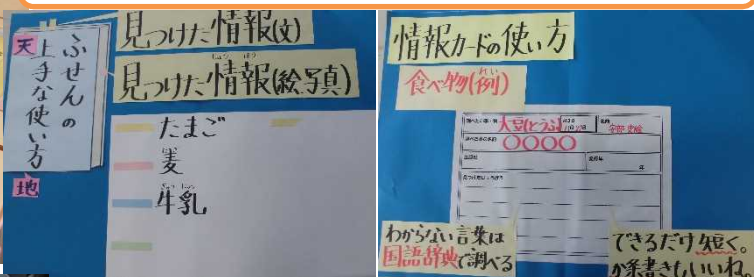 天
ふせんの
上手な使い方
地
見つけた情報(文)
見つけた情報(絵写真)
じょうほう
たまご
麦
牛乳
情報カードの使い方
食べ物(例)
れい
大豆(とうふ)
○○○○
わからない言葉は
国語辞典で調べる
できるだけ短く。
か条書きもいいね